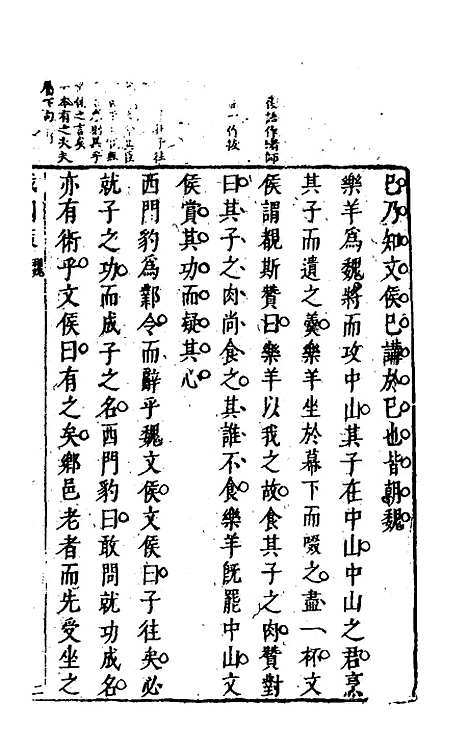 已乃知文侯已講於已也皆朝魏
樂羊為魏將而攻中山其子在中山中山之君烹
其子而遺之羹樂羊坐於幕下而啜之盡一杯文
侯謂覩斯贊曰樂羊以我之故食其子之肉贊對
曰其子之肉尚食之其誰不食樂羊旣罷中山文
侯賞其功而疑其心
西門豹為鄴令而辭乎魏文侯文侯曰子往矣必
就子之功而成子之名西門豹曰敢問就功成名
亦有術乎文侯曰有之矣鄉邑老者而先受坐之
魏
一本有之大夫